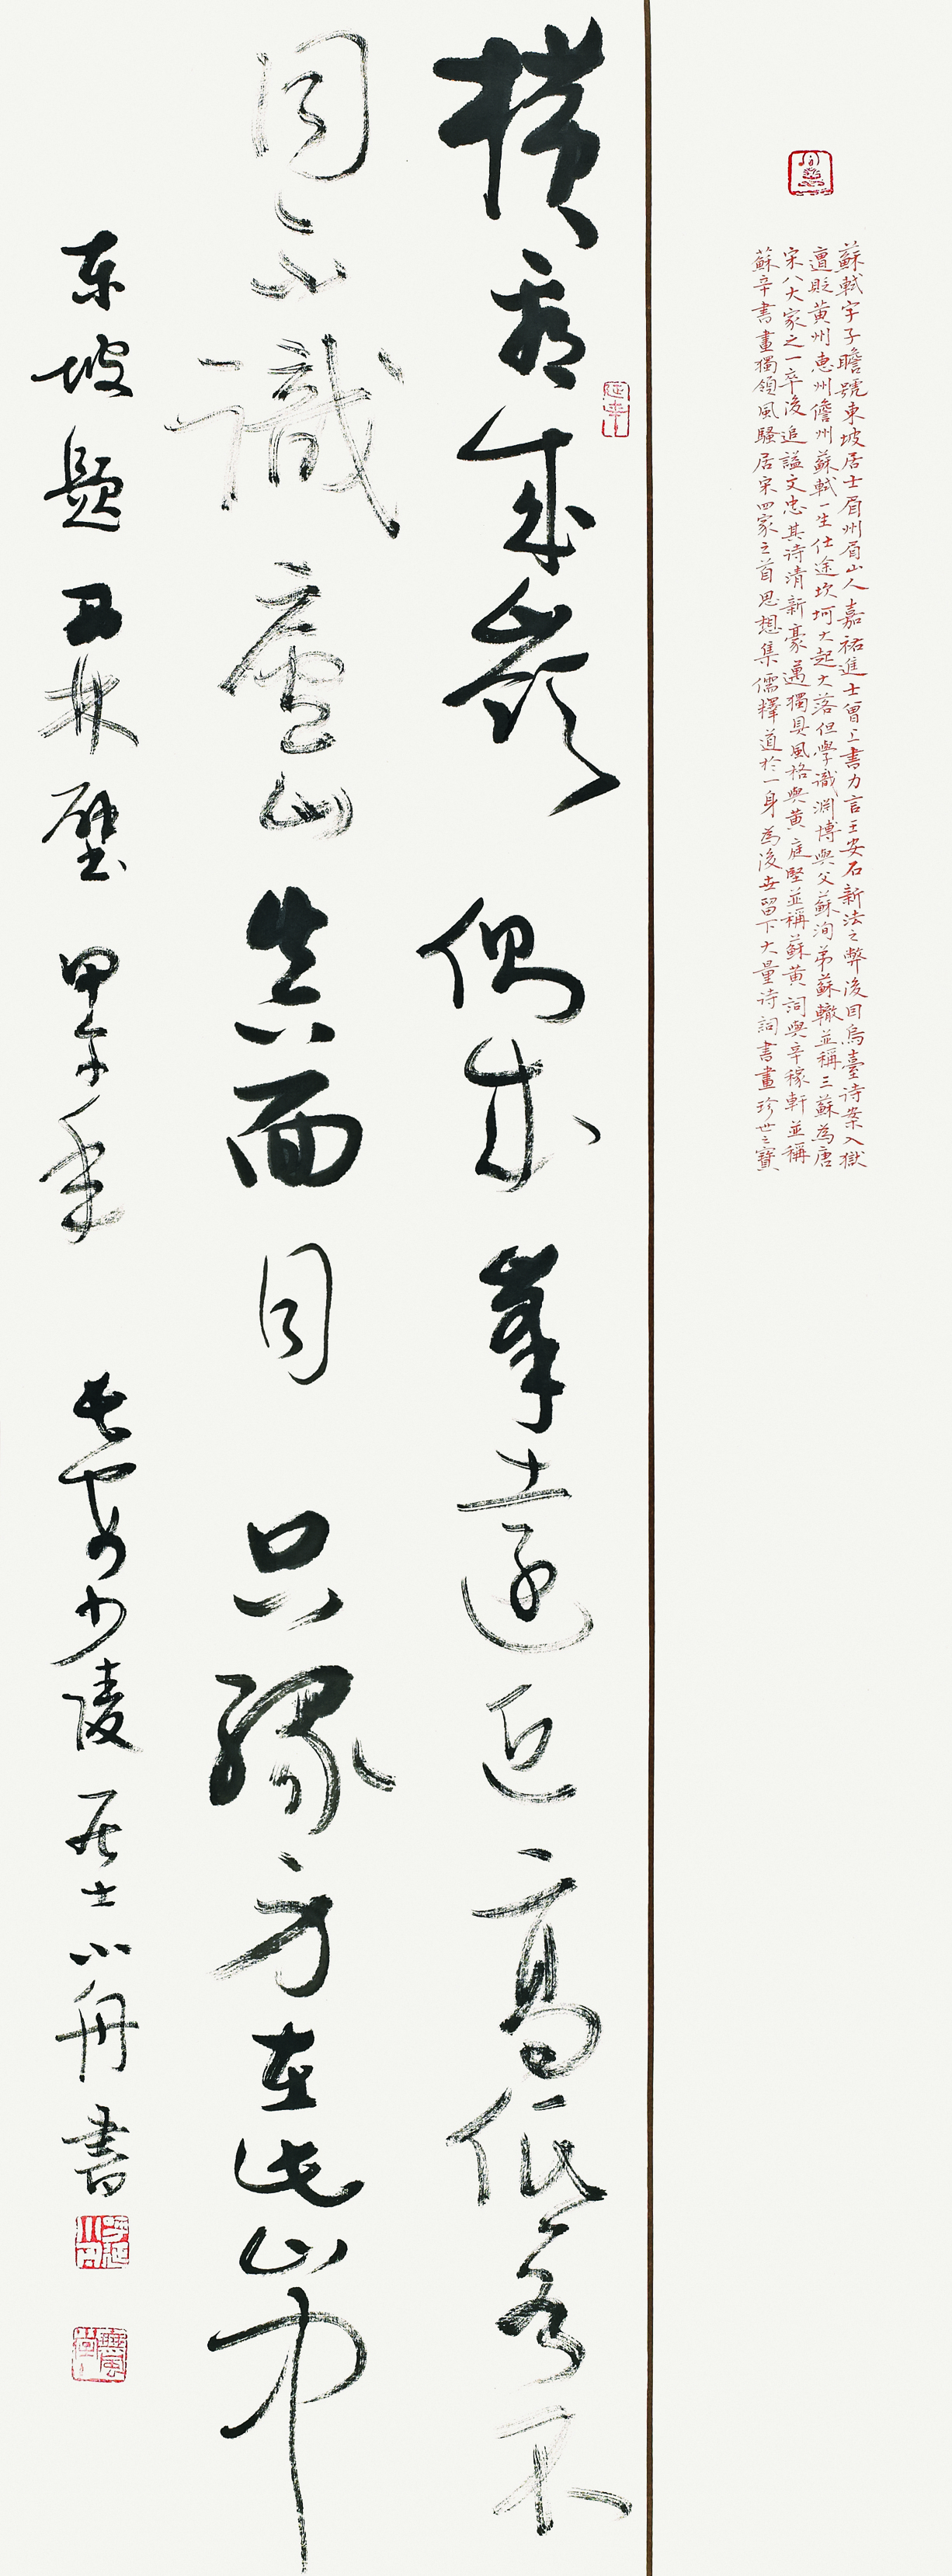 蘇軾字子瞻號東坡居士眉州眉山人嘉祐進士曾上書力言王安石新法之弊後因烏臺詩案入獄
遭貶黃州惠州儋州蘇軾一生仕途坎坷大起大落但學識淵博與父蘇洵弟蘇轍並稱三蘇為唐
宋八大家之一卒後追謚文忠其詩清新豪邁獨具風格與黃庭堅並稱蘇黃詞與辛稼軒並稱
蘇辛書畫獨領風騷居宋四家之首思想集儒釋道於一身為後世留下大量詩詞書畫珍世之寶
橫看成嶺側成峯遠近高低各不
同不識廬山真面目只緣身在此山中
东坡題西林壁甲午年長安少陵居士小舟書